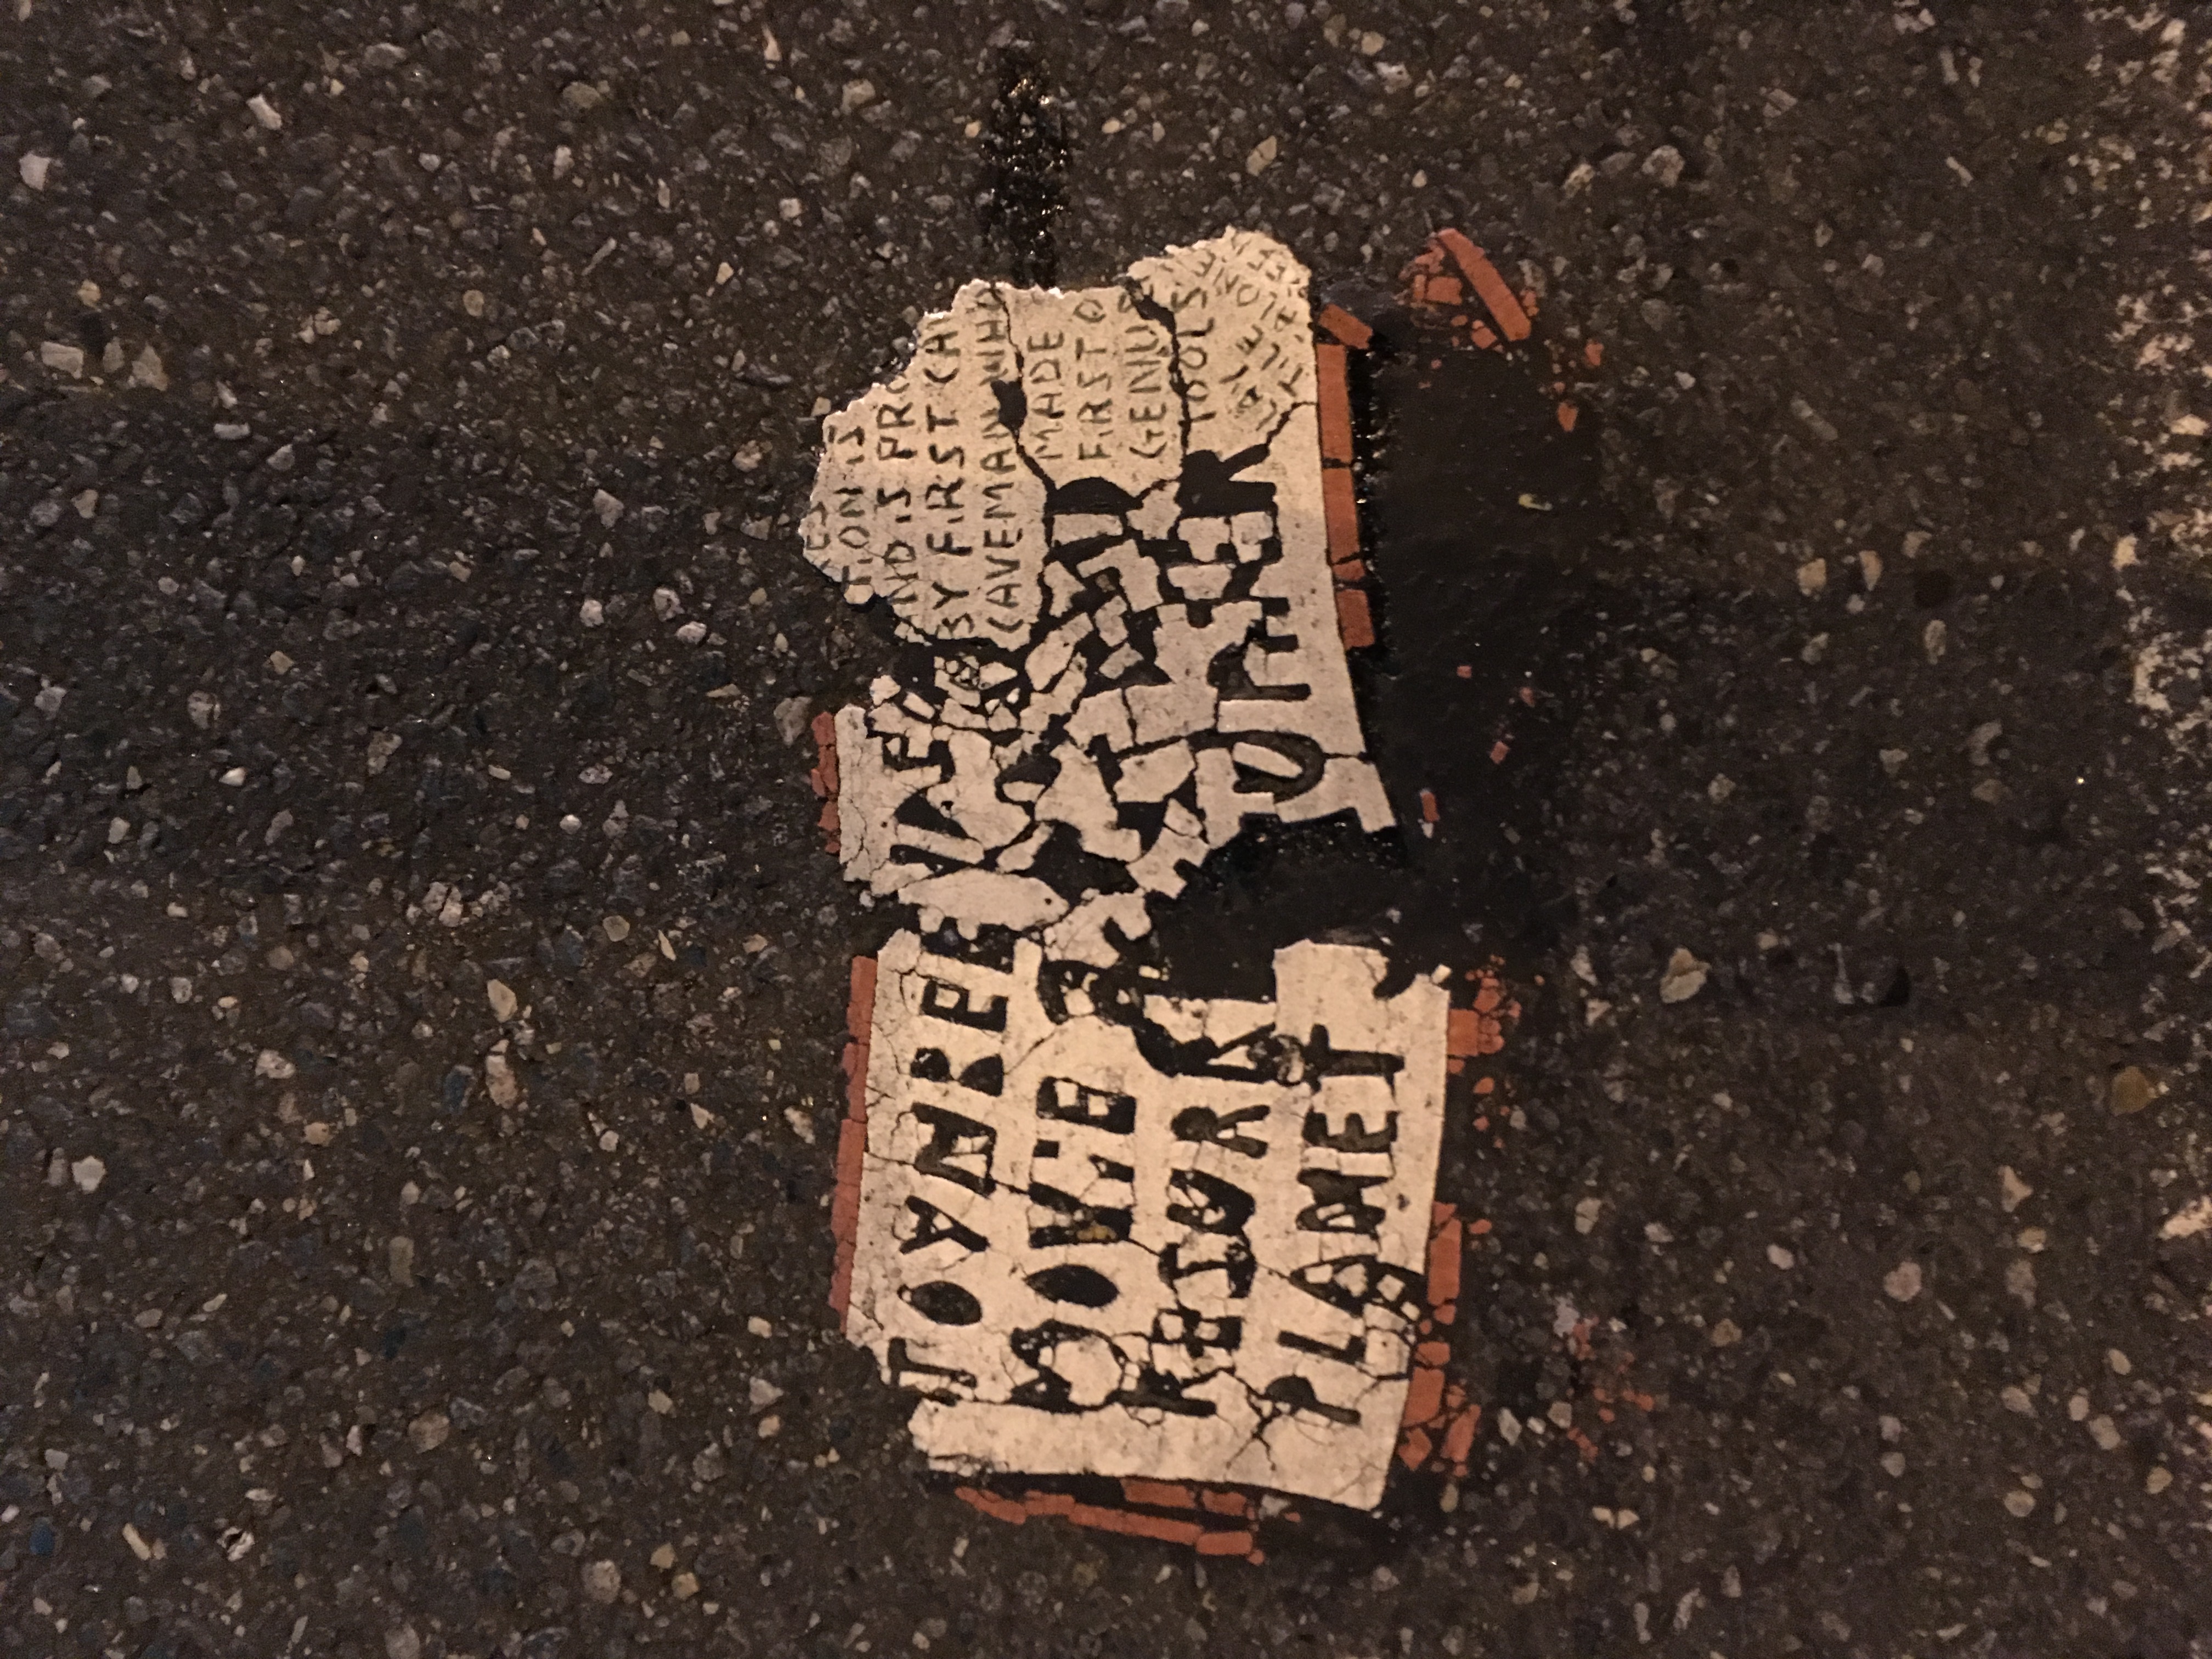 TOYNBEE IDEA
MOVIE 2
RESURR
PLANET JUPITER
TION IS
ND IS PRO
BY FIRST CAV
CAVEMAN WHO
MADE
FIRST O
GENUS
TOOLS
LAY
TILE
ALONE